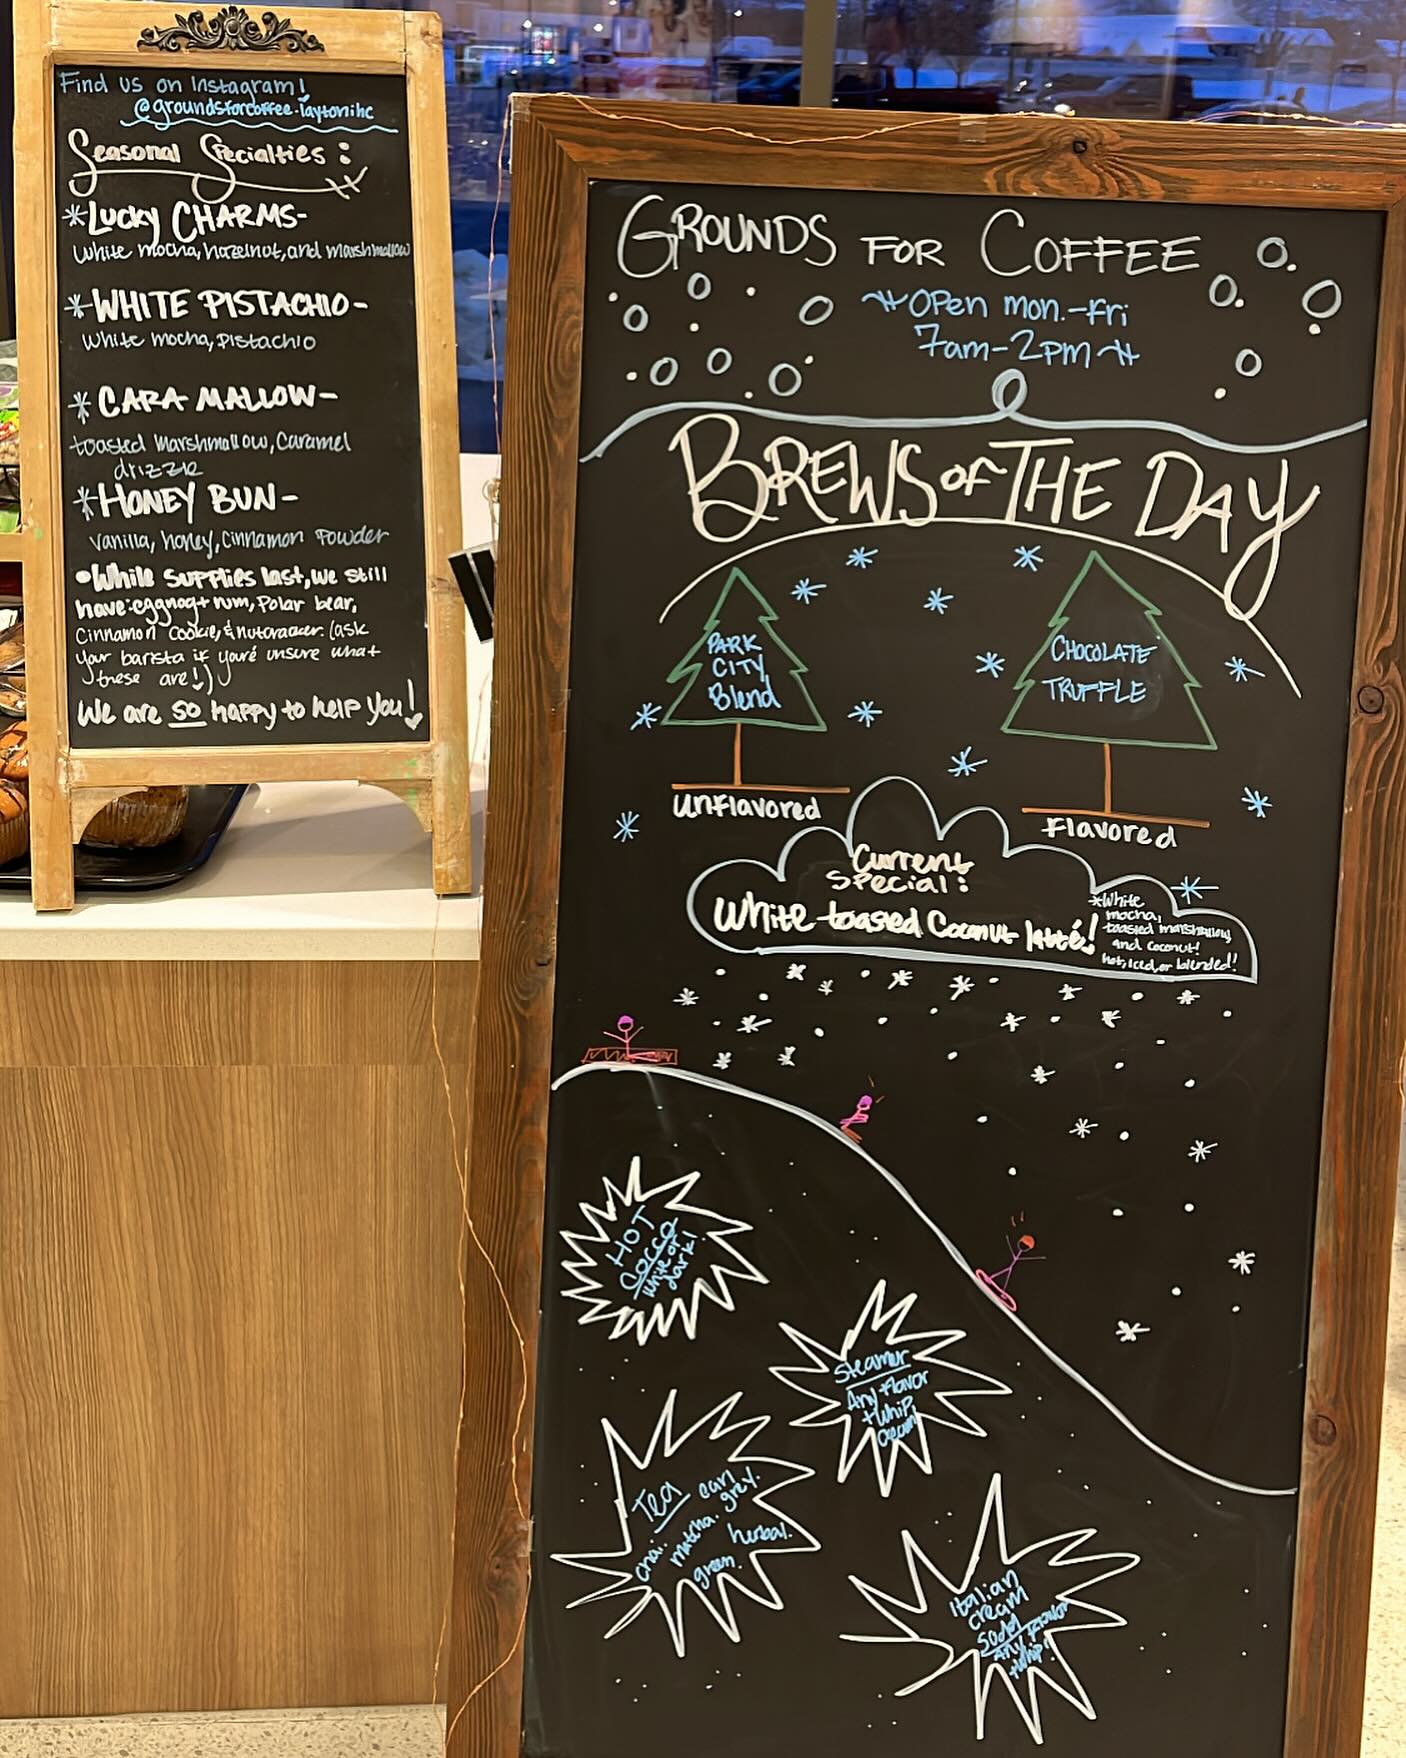 Find us on Instagram!
@groundsforcoffee.laytonihc
Seasonal Specialties:
*Lucky CHARMS-
White mocha, hazelnut, and marshmallow
*WHITE PISTACHIO-
White mocha, pistachio
*CARA MALLOW-
toasted marshmallow, Caramel
drizzle
*HONEY BUN-
Vanilla, honey, cinnamon powder
•While supplies last, we still
have: eggnog + rum, Polar bear,
Cinnamon cookie, & nutcracker. (ask
your barista if you're unsure what
these are!)
We are so happy to help you!
GROUNDS FOR COFFEE
Open mon.-fri
7am-2pm
BREWS of THE DAY
PARK
CITY
Blend
unflavored
CHOCOLATE
TRUFFLE
Flavored
Current
special:
White toasted Coconut latté!
*White
mocha,
toasted marshmallow,
and coconut!
hot, iced, or blended!
HOT
Cocoa
White or
dark!
Steamer
Any flavor
+ whip
cream!
Tea
earl
grey.
chai.
matcha.
herbal.
green.
Italian
cream
soda
Any flavor
+ whip!